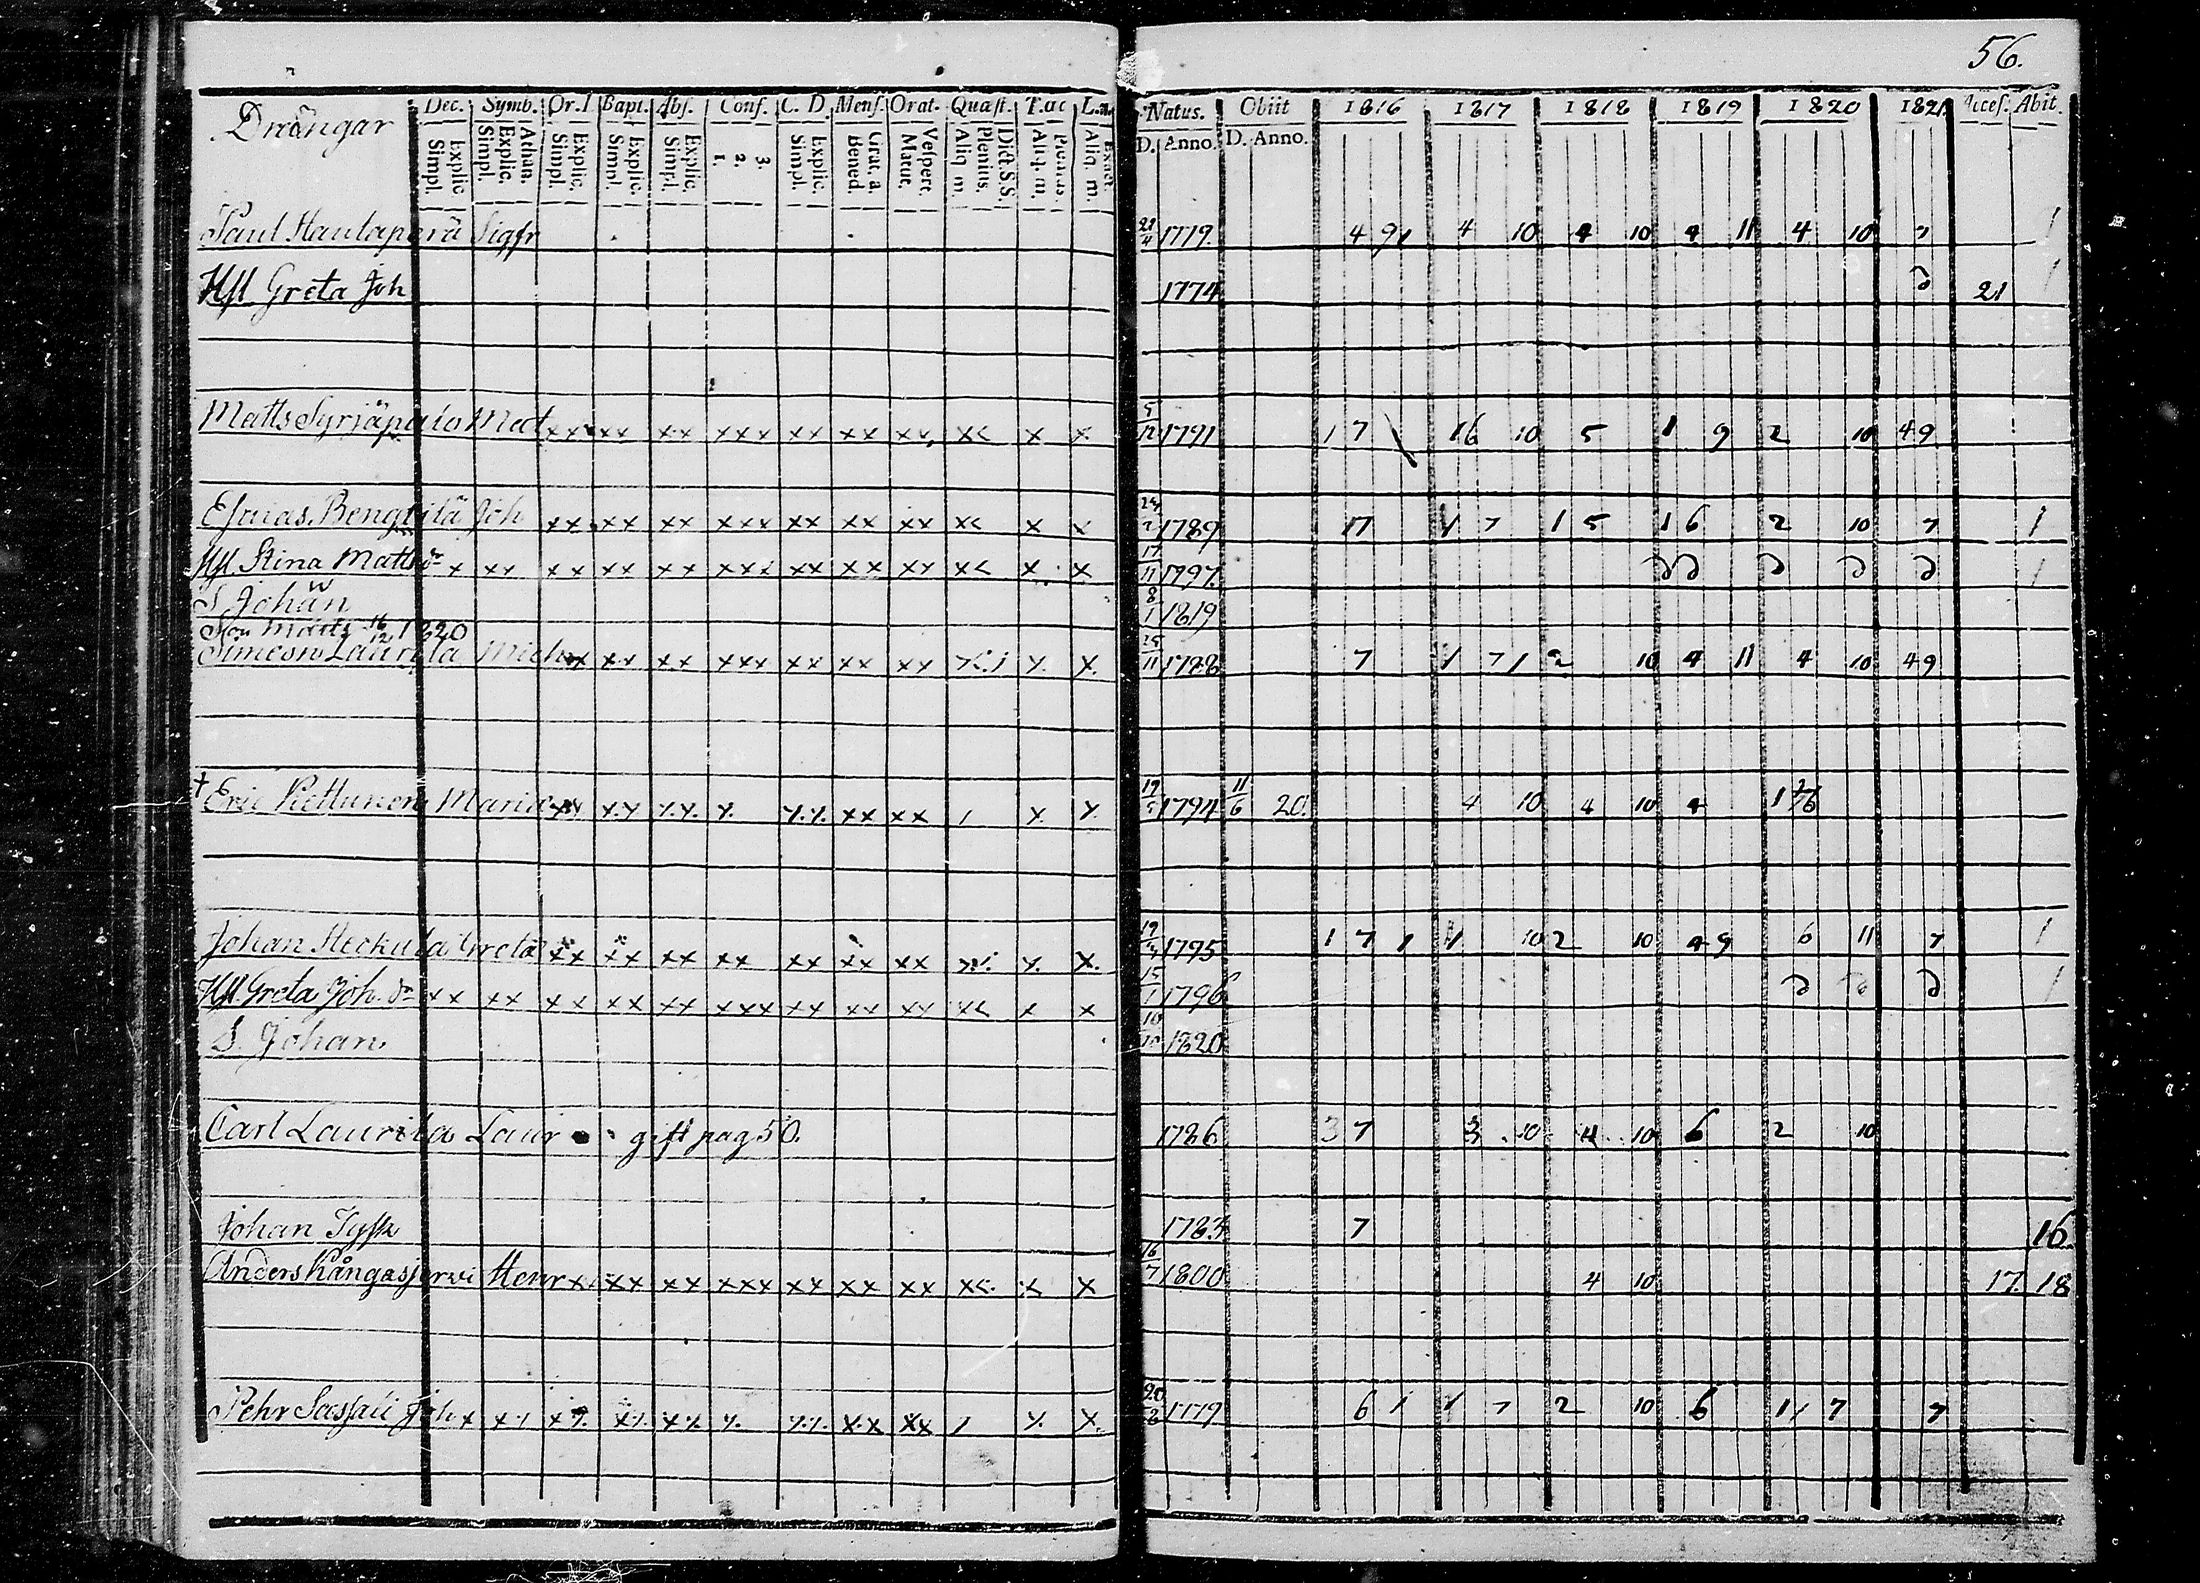 56.
Drängar Dec. Symb. Or.D Bapt. Abs. Conf. C. D. Mens. Orat. Quæst. T.ac L. Natus. Obiit 1816 1817 1818 1819 1820 1821. Acces. Abit.
Explic. Simpl. Athan. Explic. Simpl. Explic. Simpl. Explic. Simpl. Explic. Simpl. 3. 2. 1. Explic. Simpl. Grat. a. Bened. Vespert. Matut. Dict.S.S. Plenius. Aliq. m. Plenius. Aliq. m. Exact. Aliq. m. D. Anno. D. Anno.
Paul Hautaperä Sigfr 21/4 1779. 4 9 1 4 10 4 10 4 11 4 10 7 1
Hst Greta Joh 1774 D 21 1
Matts Syrjäpalo Mat xx xx xx xxx xx xx xx x< x x 5/12 1791 1 7 \ 16 10 5 1 9 2 10 49
Esaias Bengtilä Joh xx xx xx xxx xx xx xx x< x x 1789 17 1 7 1 5 1 6 2 10 7 1
Hst. Stina Matts dr x xx xx xx xx xxx xx xx xx x< x x 17/11 1797. D D D D D 1
S Johan 8/1 1819
Son Matts 16/12 1820
Simeon Laurila Mich xx xx xx xxx xx xx xx x x. 25/11 1788 7 1 7 1 2 10 4 11 4 10 49
† Eric Kettunen Maria xx xx xx x. xx xx xx / x x 19/5 1794 11/6 20. 4 10 4 10 4 1
Johan Heckula Greta xx xx xx xx xx xx xx x. x. 1795 1 7 1 1 10 2 10 4 9 6 11 7 1
Hst. Greta Joh. dr xx xx xx xx xx xxx xx xx xx x< x x 15/1 1796 D D D 1
S. Johan 10/10 1820
Carl Laurila Laur gift pag 50. 1786 3 7 3 10 4 10 6 2 10
Johan Tysk 1783 7 16
Anders Kångasjervi Henr xx xx xx xxx xx xx xx x<. x x 16/7 1800 4 10 17. 18
Pehr Sassali Joh x xx xx xx xx x. xx xx xx / x. x. 20/8 1779 6 1 1 7 2 10 6 1 1 7 7